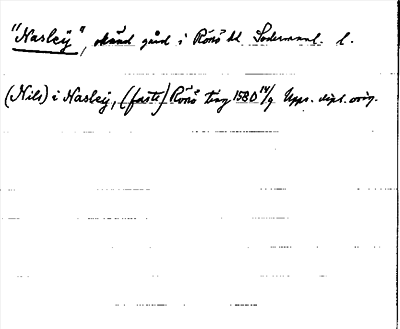 "Nasleÿ", okänd gård i Rönö hd. Södermanl. l.
(Nils) i Nasleÿ, (faste) Rönö ting 1580 14/9 Upps. dipl. orig.